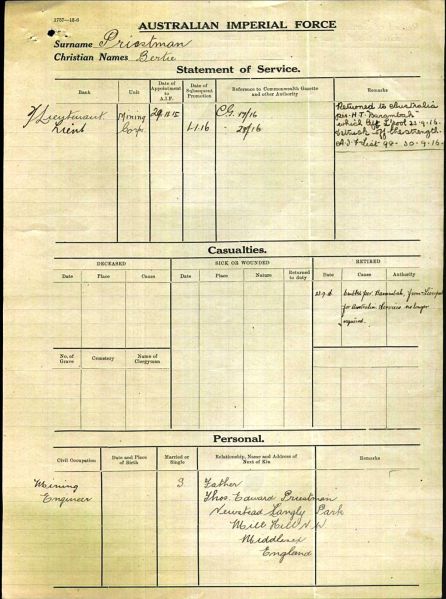 1757—15-6
AUSTRALIAN IMPERIAL FORCE
Surname Priestman
Christian Names Bertie
Statement of Service.
Rank
Unit
Date of Appointment to A.I.F.
Date of Subsequent Promotion
Reference to Commonwealth Gazette and other Authority
Remarks
2/Lieutenant
Lieut
Mining
Corps
29.12.15
1.1.16
CG 17/16
29/16
Returned to Australia
per H.T. Barambah
which left L'pool 23.9.16.
struck off the strength.
A.I.F. List 99 - 30.9.16.
Casualties.
DECEASED
SICK OR WOUNDED
RETIRED
Date
Place
Cause
Date
Place
Nature
Returned to duty
Date
Cause
Authority
No. of Grave
Cemetery
Name of Clergyman
23.9.16
Emb'ked per Barambah, from Liverpool
for Australia. Services no longer
required.
Personal.
Civil Occupation
Date and Place of Birth
Married or Single
Relationship, Name and Address of Next of Kin
Remarks
Mining
Engineer
S.
Father
Thos. Edward Priestman
Newstead Langly Park
Mill Hill N.W.
Middlesex
England